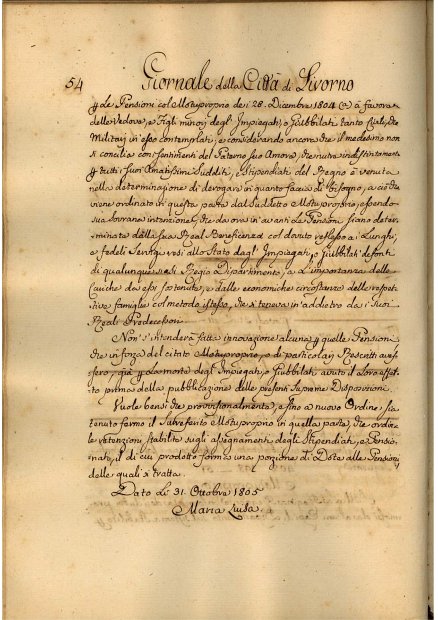 54 Giornale della Città di Livorno
le Pensioni col Motuproprio de i 28. Dicembre 1804 à favore
delle Vedove, e Figli minori degl' Impiegati, o Giubbilati tanto Civili, che
Militari in esso contemplati, e considerando ancora che il medesimo non
si concilia con i sentimenti del Paterno suo Amore, che nutre indistintamente
tutti i suoi Amatissimi Sudditi, e Stipendiati del Regno è venuta
nella determinazione di derogare in quanto faccia di bisogno, a ciò che
viene ordinato in questa parte dal suddetto Motuproprio, essendo
sua Sovrana intenzione, che da ora in avanti le Pensioni siano deter-
minate dalla sua Real Beneficenza col dovuto reflesso ai Lunghi,
e fedeli Servizi resi allo Stato dagl' Impiegati, o Giubbilati defonti
di qualunque Regio Dipartimento, a l'importanza delle
Cariche da essi sostenute, e dalle economiche circostanze delle respet-
tive famiglie col metodo istesso, che si teneva in addietro da i suoi
Reali Predecessori
Non s'intenderà fatta innovazione alcuna quelle Pensioni
che in forza del citato Motuproprio, o di particolari Rescritti aves-
sero, già morte degl' Impiegati, o Giubbilati avuto il loro effet-
to prima della pubblicazione delle presenti Supreme Disposizioni.
Vuole bensì che provvisionalmente, e fino a nuovo Ordine sia
tenuto fermo il Surreferito Motuproprio in quella parte, che ordina
le retenzioni stabilite sugli assegnamenti degli Stipendiati, e Pensio-
nati, il di cui prodotto forma una porzione di Dote alle Pensioni
delle quali si tratta.
Dato Li 31. Ottobre 1805
Maria Luisa